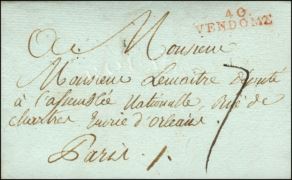 40
VENDOME
A Monsieur
Monsieur Lemaitre Député
à l'assemblée Nationalle, Rue de
chartres Ecurie d'orleans.
Paris. 1.
7